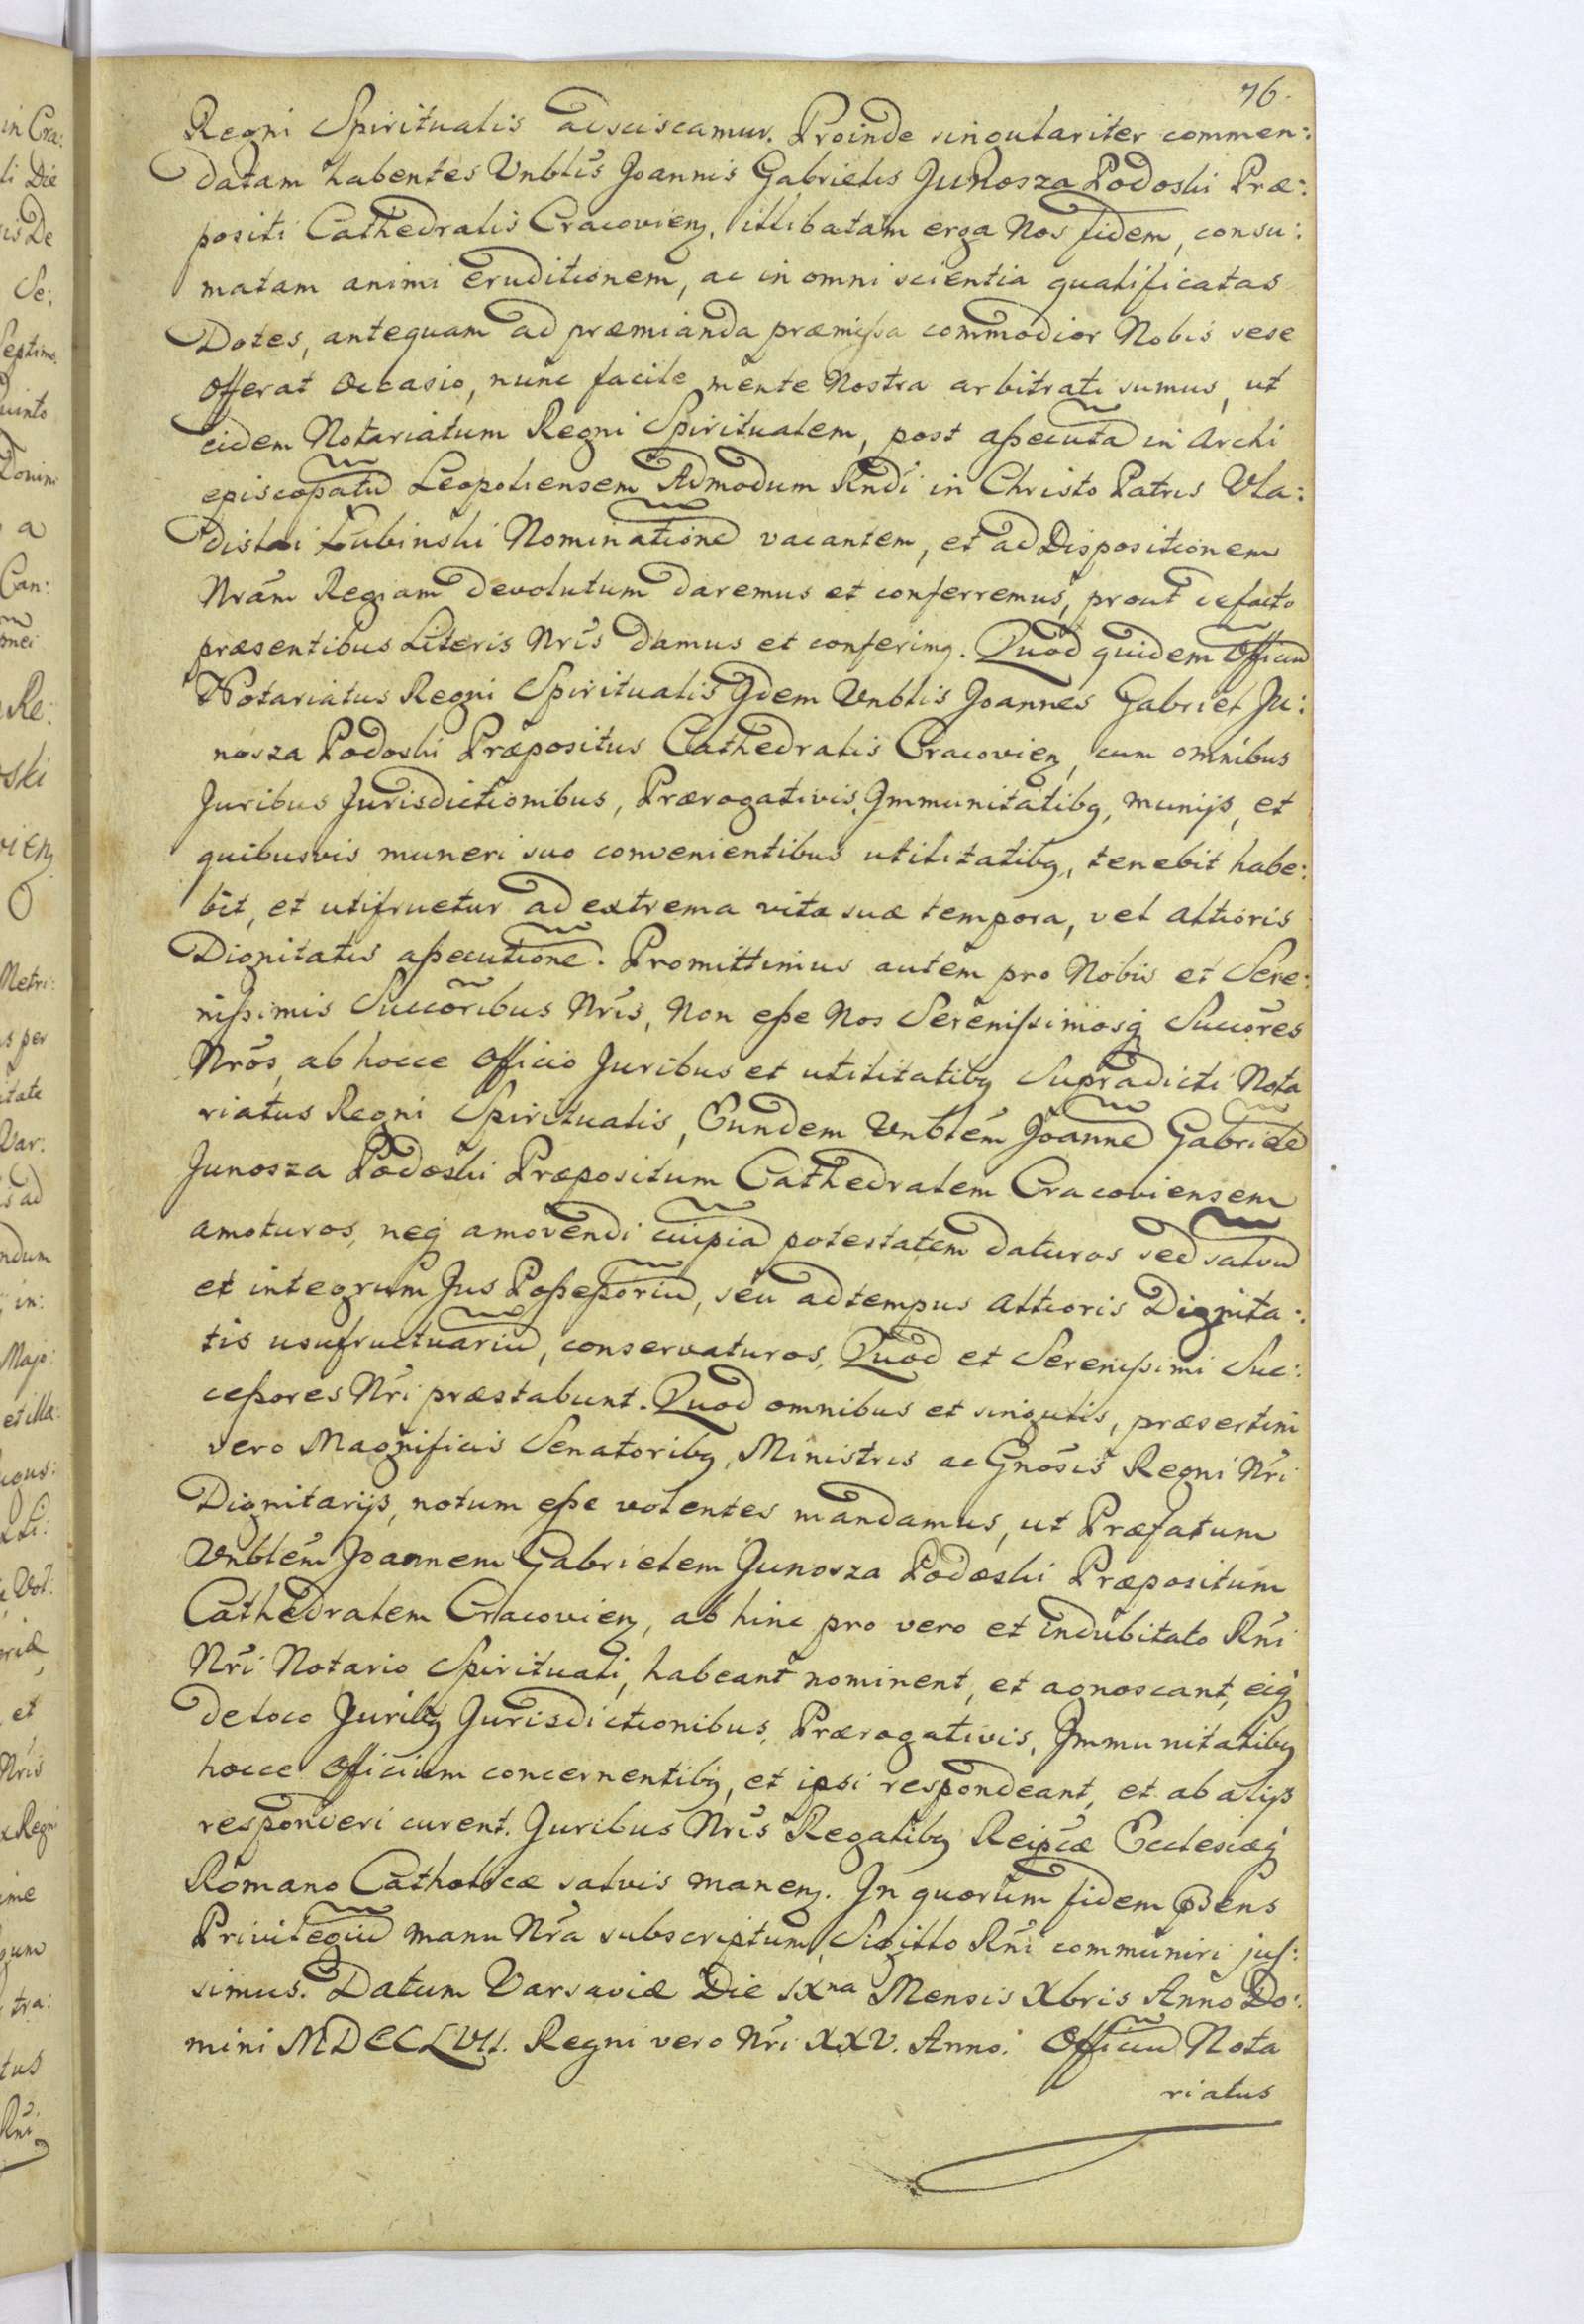 76.
Regni Spiritualis adsciscamur. Proinde singulariter commen:
datam habentes Vnblis Joannis Gabrielis Junosza Podoski Præ:
positi Cathedralis Cracovien, illibatam erga Nos fidem, consu:
matam animi eruditionem, ac in omni scientia qualificatas
Dotes, antequam ad præmianda præmissa commodior Nobis sese
offerat occasio, nunc facile mente Nostra arbitrati sumus, ut
eidem Notariatum Regni Spiritualem, post assecuta in Archi
episcopatu Leopoliensem Admodum Rndi in Christo Patris Vla:
dislai Łubinski Nominatione vacantem, et ad Dispositionem
Nram Regiam devolutum daremus et conferremus, prout defacto
præsentibus Literis Nris damus et conferimq. Quod quidem Officiu
Notariatus Regni Spiritualis Idem Vnblis Joannes Gabriel Ju:
nosza Podoski Præpositus Cathedralis Cracovien, cum omnibus
Juribus Jurisdictionibus, Prærogativis, Immunitatibq, munijs, et
quibusvis muneri suo convenientibus utilitatibq, tenebit habe:
bit, et utifruetur ad extrema vitæ suæ tempora, vel altioris
Dignitatis assecutione. Promittimus autem pro Nobis et Sere:
nissimis Succoribus Nris, Non esse Nos Serenissimosq Succores
Nros, ab hocce Officio Juribus et utilitatibq Supradicti Nota
riatus Regni Spiritualis, Eundem Vnblem Joanne Gabriele
Junosza Podoski Præpositum Cathedralem Cracoviensem
amoturos, neq amovendi cuipia potestatem daturos sed salvu
et integrum Jus Possessoriu, seu ad tempus altioris Dignita:
tis usufructuariu, conservaturos. Quod et Serenissimi Suc:
cessores Nri præstabunt. Quod omnibus et singulis, præsertim
vero Magnificis Senatoribq, Ministris ac Gnosis Regni Nri
Dignitarijs, notum esse volentes mandamus, ut Præfatum
Vnblem Joannem Gabrielem Junosza Podoski Præpositum
Cathedralem Cracovien, ab hinc pro vero et indubitato Rni
Nri Notario Spirituali, habeant nominent, et agnoscant, eiq
de loco Juribq Jurisdictionibus, Prærogativis, Immunitatibq
hocce Officium concernentibq, et ipsi respondeant, et ab alijs
responderi curent. Juribus Nris Regalibq Reipcæ Ecclesiæq
Romano Catholicæ salvis manen. In quorum fidem præsens
Privilegiu manu Nra subscriptum, Sigillo Rni communiri jus:
simus. Datum Varsaviæ Die IXna Mensis Xbris Anno Do:
mini MDCCLVII. Regni vero Nri XXV. Anno. Officiu Nota
riatus